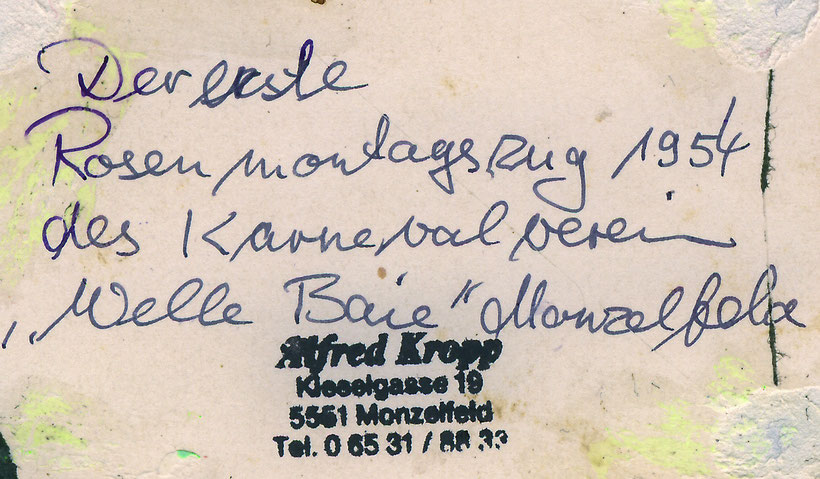 Der erste
Rosenmontagszug 1954
des Karnevalverein
„Welle Baie“ Monzelfeld
Alfred Kropp
Kieselgasse 19
5561 Monzelfeld
Tel. 0 65 31 / 88 33